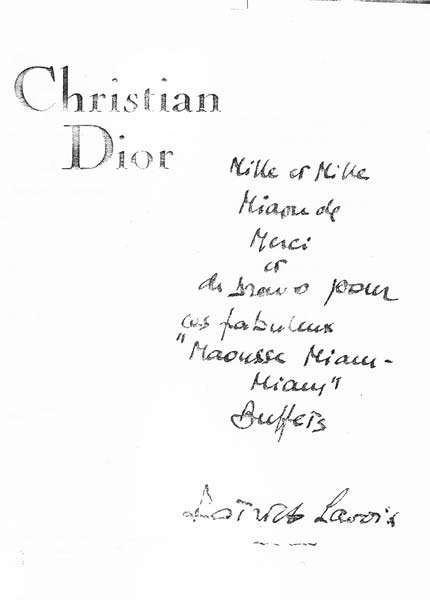 Christian
Dior
Mille et Mille
Miaou de
Merci
et
de Bravo pour
ces fabuleux
"Maousse Miam-
Miam"
Buffets
Lavoix